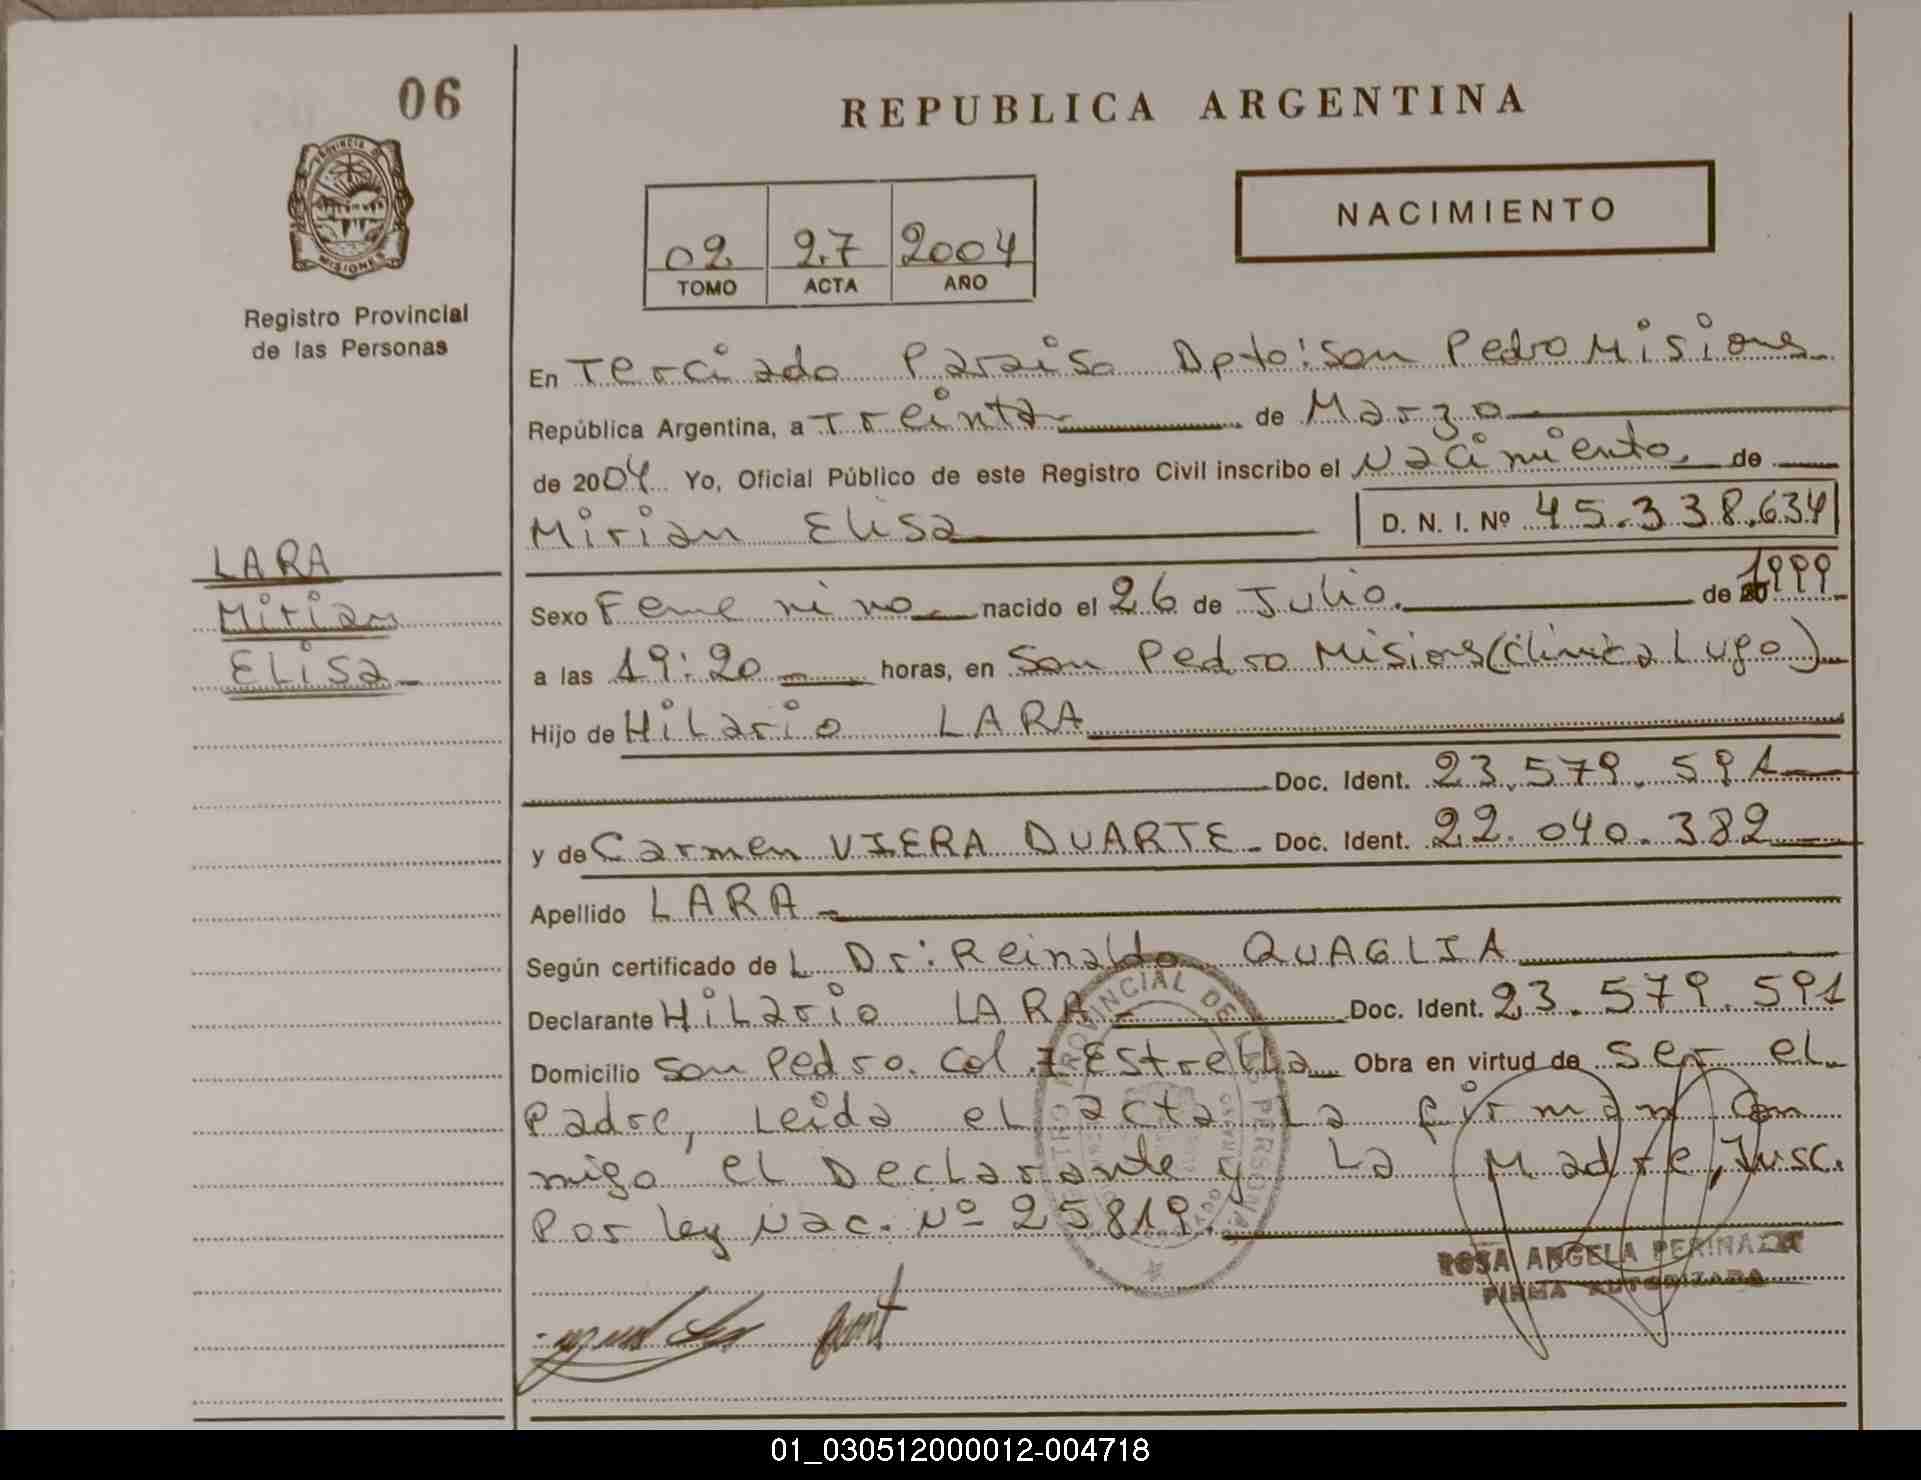 06
PROVINCIA DE
MISIONES
Registro Provincial
de las Personas
LARA
Mirian
Elisa
REPUBLICA ARGENTINA
02 27 2004
TOMO ACTA AÑO
NACIMIENTO
En Terciado Paraiso Dpto: San Pedro Misiones
República Argentina, a Treinta de Marzo
de 2004 Yo, Oficial Público de este Registro Civil inscribo el Nacimiento de
Mirian Elisa D. N. I. Nº 45.338.634
Sexo Femenino nacido el 26 de Julio. de 1999
a las 19:20 horas, en San Pedro Misiones (Clinica Lugo)
Hijo de Hilario LARA
Doc. Ident. 23.579.591
y de Carmen VIERA DUARTE Doc. Ident. 22.040.382
Apellido LARA
Según certificado de L Dr: Reinaldo QUAGLIA
Declarante Hilario LARA Doc. Ident. 23.579.591
Domicilio San Pedro. Col. Estrella Obra en virtud de ser el
Padre, Leida el acta La firman con
migo el Declarante y La Madre, Insc.
Por ley Nac. Nº 25819.
ROSA ANGELA
FIRMA AUTORIZADA
01_030512000012-004718